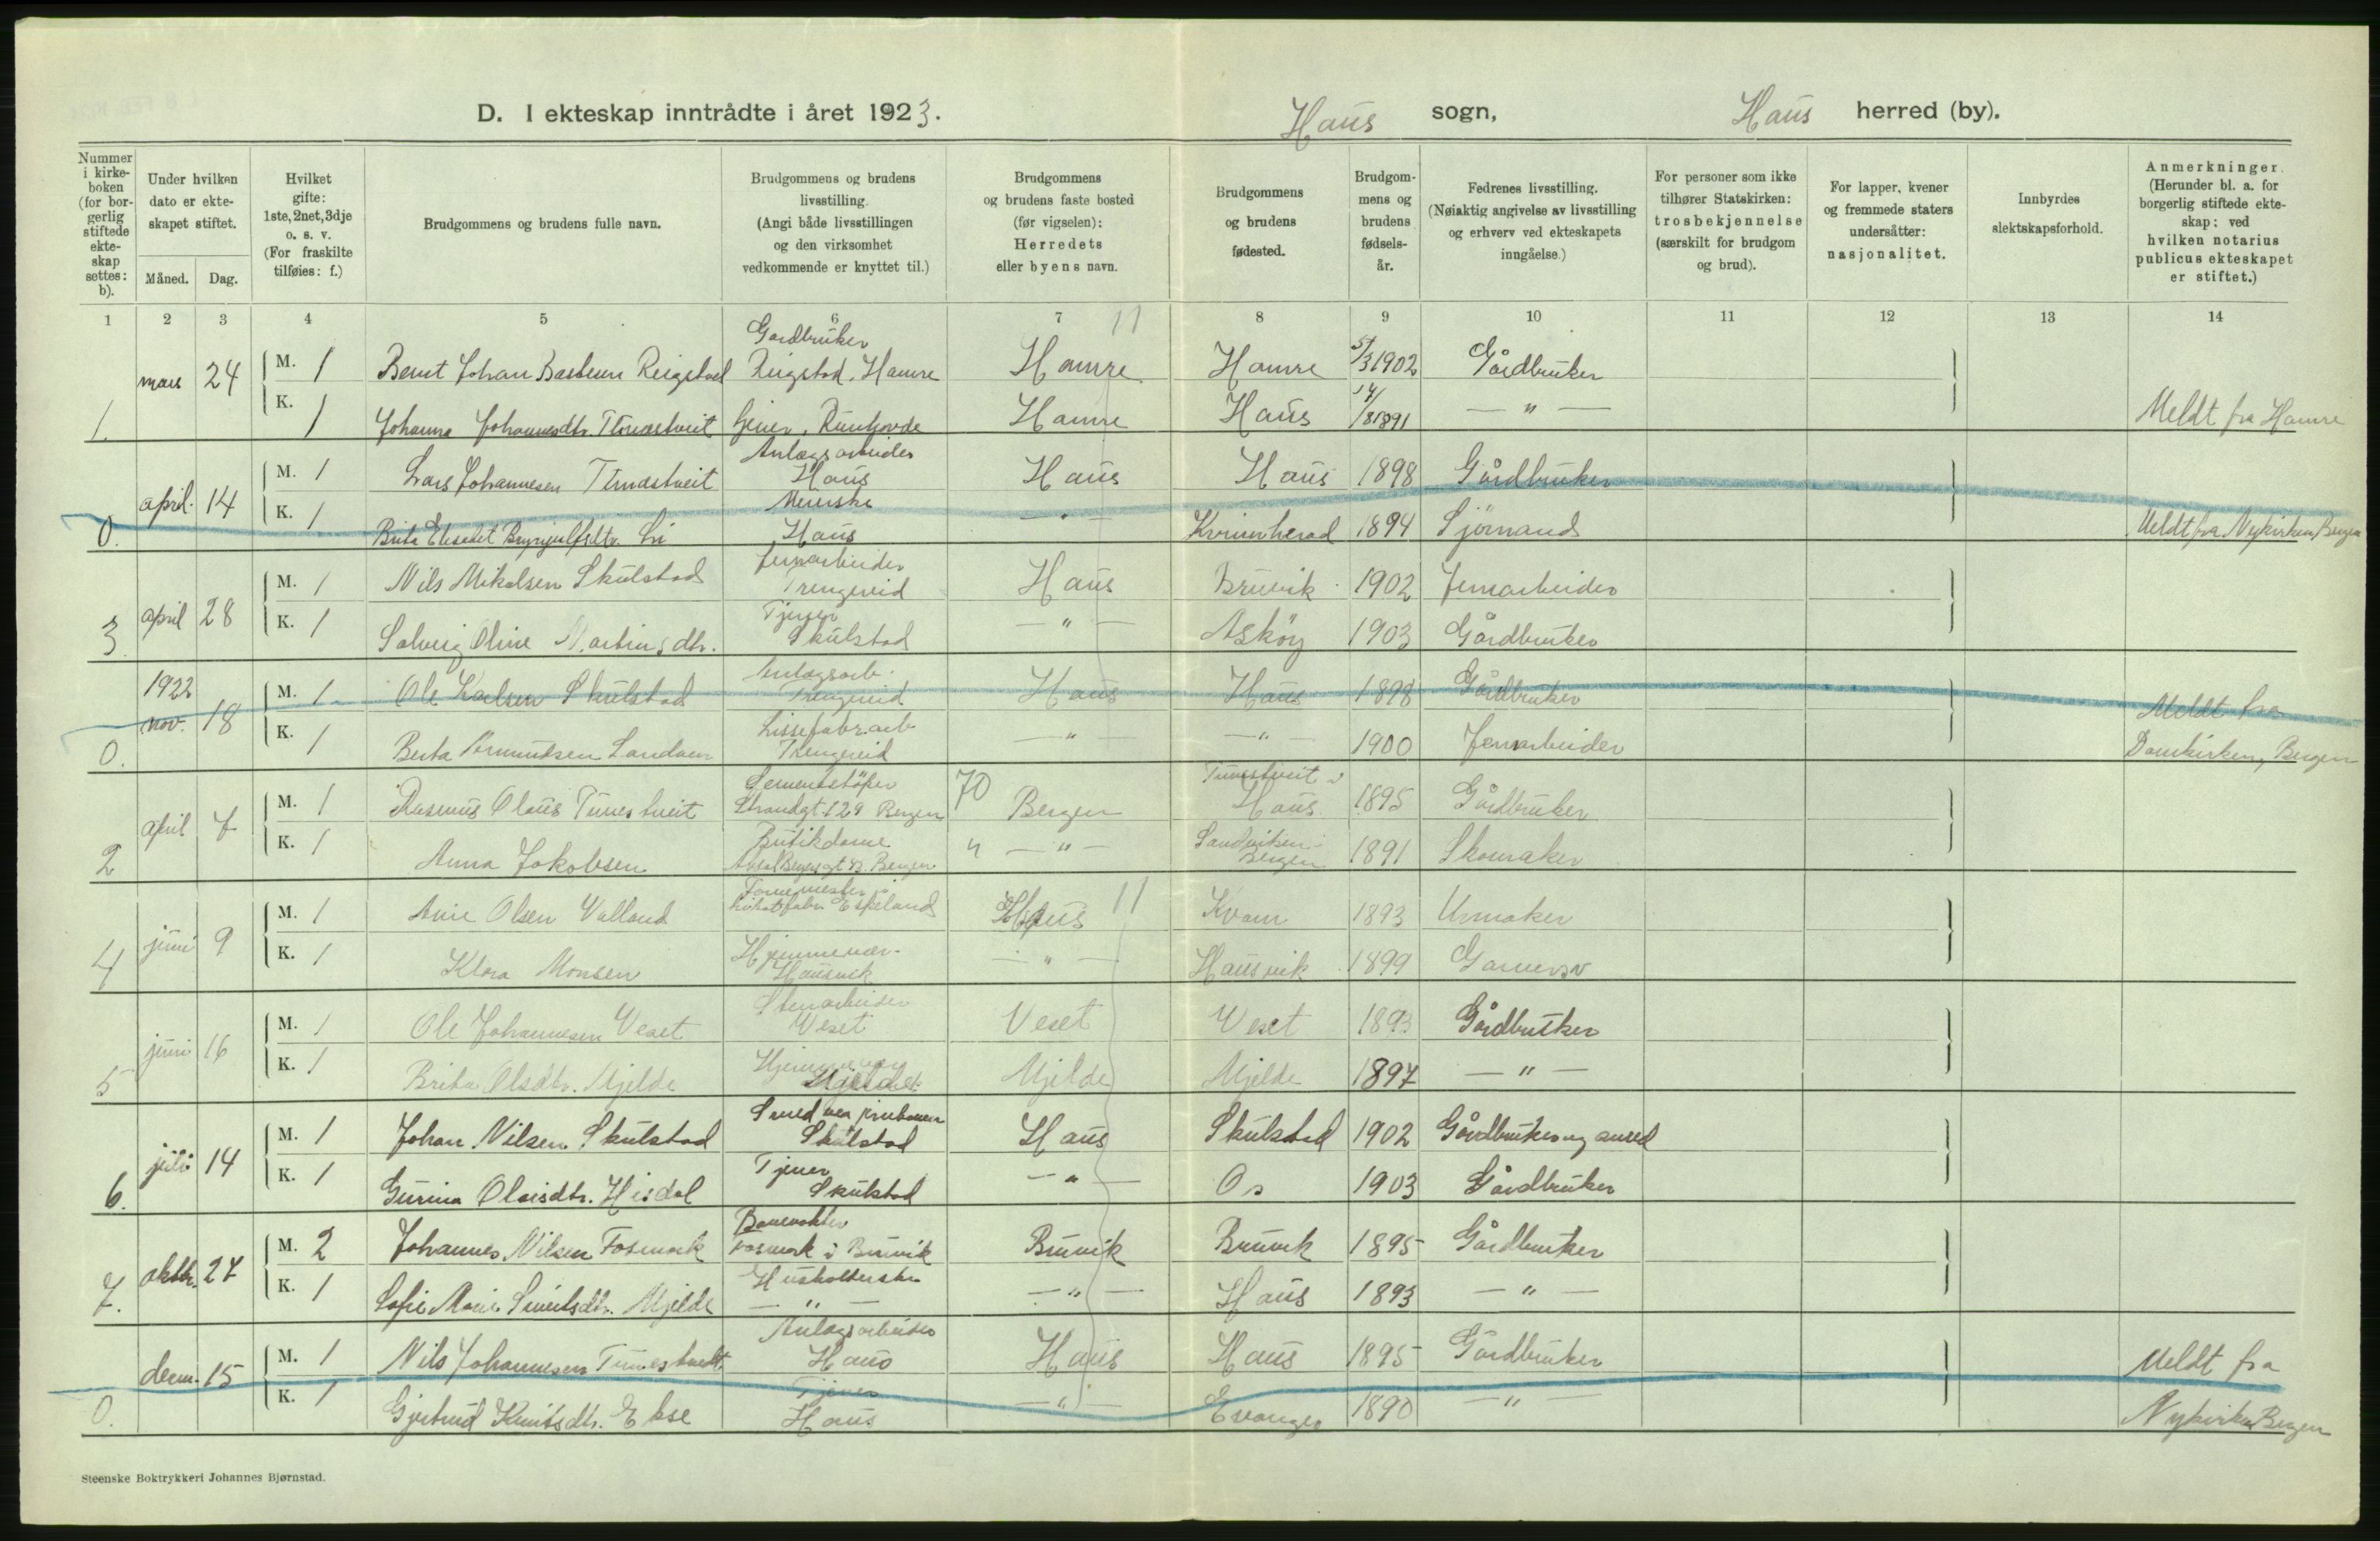 D. I ekteskap inntrådte i året 1923.
Haus sogn,
Haus herred (by).
Nummer i kirkeboken (for borgerlig stiftede ekteskap settes: b).
Under hvilken dato er ekteskapet stiftet.
Måned.
Dag.
Hvilket gifte: 1ste, 2net, 3dje o. s. v. (For fraskilte tilføies: f.)
Brudgommens og brudens fulle navn.
Brudgommens og brudens livsstilling. (Angi både livsstillingen og den virksomhet vedkommende er knyttet til.)
Brudgommens og brudens faste bosted (før vigselen): Herredets eller byens navn.
Brudgommens og brudens fødested.
Brudgommens og brudens fødselsår.
Fedrenes livsstilling. (Nøiaktig angivelse av livsstilling og erhverv ved ekteskapets inngåelse.)
For personer som ikke tilhører Statskirken: trosbekjennelse (særskilt for brudgom og brud).
For lapper, kvener og fremmede staters undersåtter: nasjonalitet.
Innbyrdes slektskapsforhold.
Anmerkninger. (Herunder bl. a. for borgerlig stiftede ekteskap: ved hvilken notarius publicus ekteskapet er stiftet.)
1 2 3 4 5 6 7 8 9 10 11 12 13 14
11
Gardbruker
mars 24 M. 1 Bernt Johan Reigstad Reigstad, Hamre Hamre Hamre 5/3 1902 Gårdbruker
1. K. 1 Johanna Johannesdtr. Tunestveit Hamre Haus 17/8 1891 — " — Meldt fra Hamre
Anlægsarbeider
april 14 M. 1 Lars Johannesen Tunestveit Haus Haus Haus 1898 Gårdbruker
0. K. 1 Brita Elisabet Brynjulfsdtr. Li Meierske Haus — " — Kvinnherad 1894 Sjømand Meldt fra Nykirken, Bergen
april 28 M. 1 Nils Mikalsen Skulstad Jernarbeider Trengereid Haus Bruvik 1902 Jernarbeider
3. K. 1 Solveig Oline Martinsdtr. Tjener Skulstad — " — Askøy 1903 Gårdbruker
1922 nov. 18 M. 1 Ole Karlsen Skulstad Anlægsarb. Trengereid Haus Haus 1898 Gårdbruker Meldt fra
0. K. 1 Berta Landam Lissefabr.arb Trengereid — " — — " — 1900 Jernarbeider Domkirken, Bergen
april 7 M. 1 Rasmus Olaus Tunestveit Sementstøper Strandgt. 129 Bergen 70 Bergen Tunestveit i Haus 1895 Gårdbruker
2 K. 1 Anna Jakobsen Butikdame Bergen " — " — Sandviken Bergen 1891 Skomaker
juni 9 M. 1 Arne Olsen Valland Espeland Haus 11 Kvam 1893 Urmaker
4 K. 1 Klara Monsen Hjemmevær. Hausvik — " — Hausvik 1899 Garver
juni 16 M. 1 Ole Johannesen Veset Stenarbeider Veset Veset Veset 1893 Gårdbruker
5 K. 1 Brita Olsdtr. Mjelde Mjelde Mjelde Mjelde 1897 — " —
juli 14 M. 1 Johan Nilsen Skulstad Smed ved jernbanen Skulstad Haus Skulstad 1902 Gårdbruker og smed
6. K. 1 Gurina Olaisdtr. Hisdal Tjener Skulstad — " — Os 1903 Gårdbruker
oktbr. 27 M. 2 Johannes Nilsen Fosmark Banevokter Fosmark i Bruvik Bruvik Bruvik 1895 Gårdbruker
7. K. 1 Sofie Marie Mjelde Husholderske — " — — " — Haus 1893 — " —
15 M. 1 Nils Johannesen Tunestveit Anlægsarbeider Haus Haus Haus 1895 Gårdbruker Meldt fra
0. K. 1 Gjertrud Knutsdtr. Ekse Tjener Haus — " — Evanger 1890 — " — Nykirken Bergen
Steenske Boktrykkeri Johannes Bjørnstad.